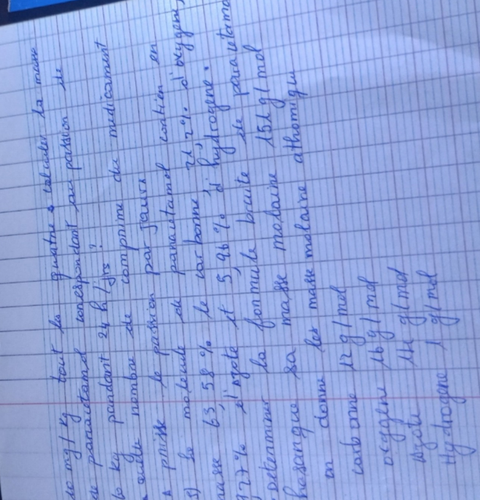 mg/kg tout la quatre calculer la masse
de paracetamol correspondant au passion de
kg pandant 24 h/jrs ?
nombre de comprime du medicament
prisse le passion par jours
3) la molecule de paracetamol contien en
masse 63,58 % de carbonne 21,2 % d'oxygene,
9,27 % d'azote et 5,96 % d'hydrogene.
determiner la formule brute de paracetamol
sa masse molaire 151 g/mol
on donne les masse molaire athomique
carbonne 12 g/mol
oxygene 16 g/mol
Azote 14 g/mol
Hydrogene 1 g/mol